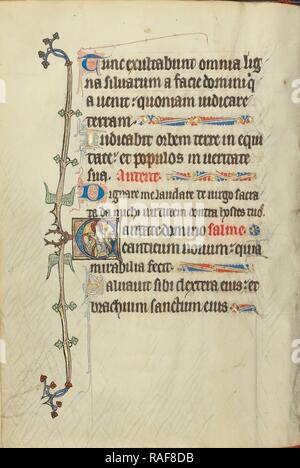 Tunc exultabunt omnia lig
na silvarum a facie domini q̄
a venit: quoniam iudicare
terram.
Iudicabit orbem terre in equi
tate: et populos in veritate
sua. Antent.
Dignare me laudare te virgo sacra
ta da michi virtutem contra hostes tuos.
Cantate domino salme.
canticum novum: quia
mirabilia fecit.
Salvavit sibi dextera eius: et
brachium sanctum eius.
alamy
Image ID: RAF8DB
www.alamy.com